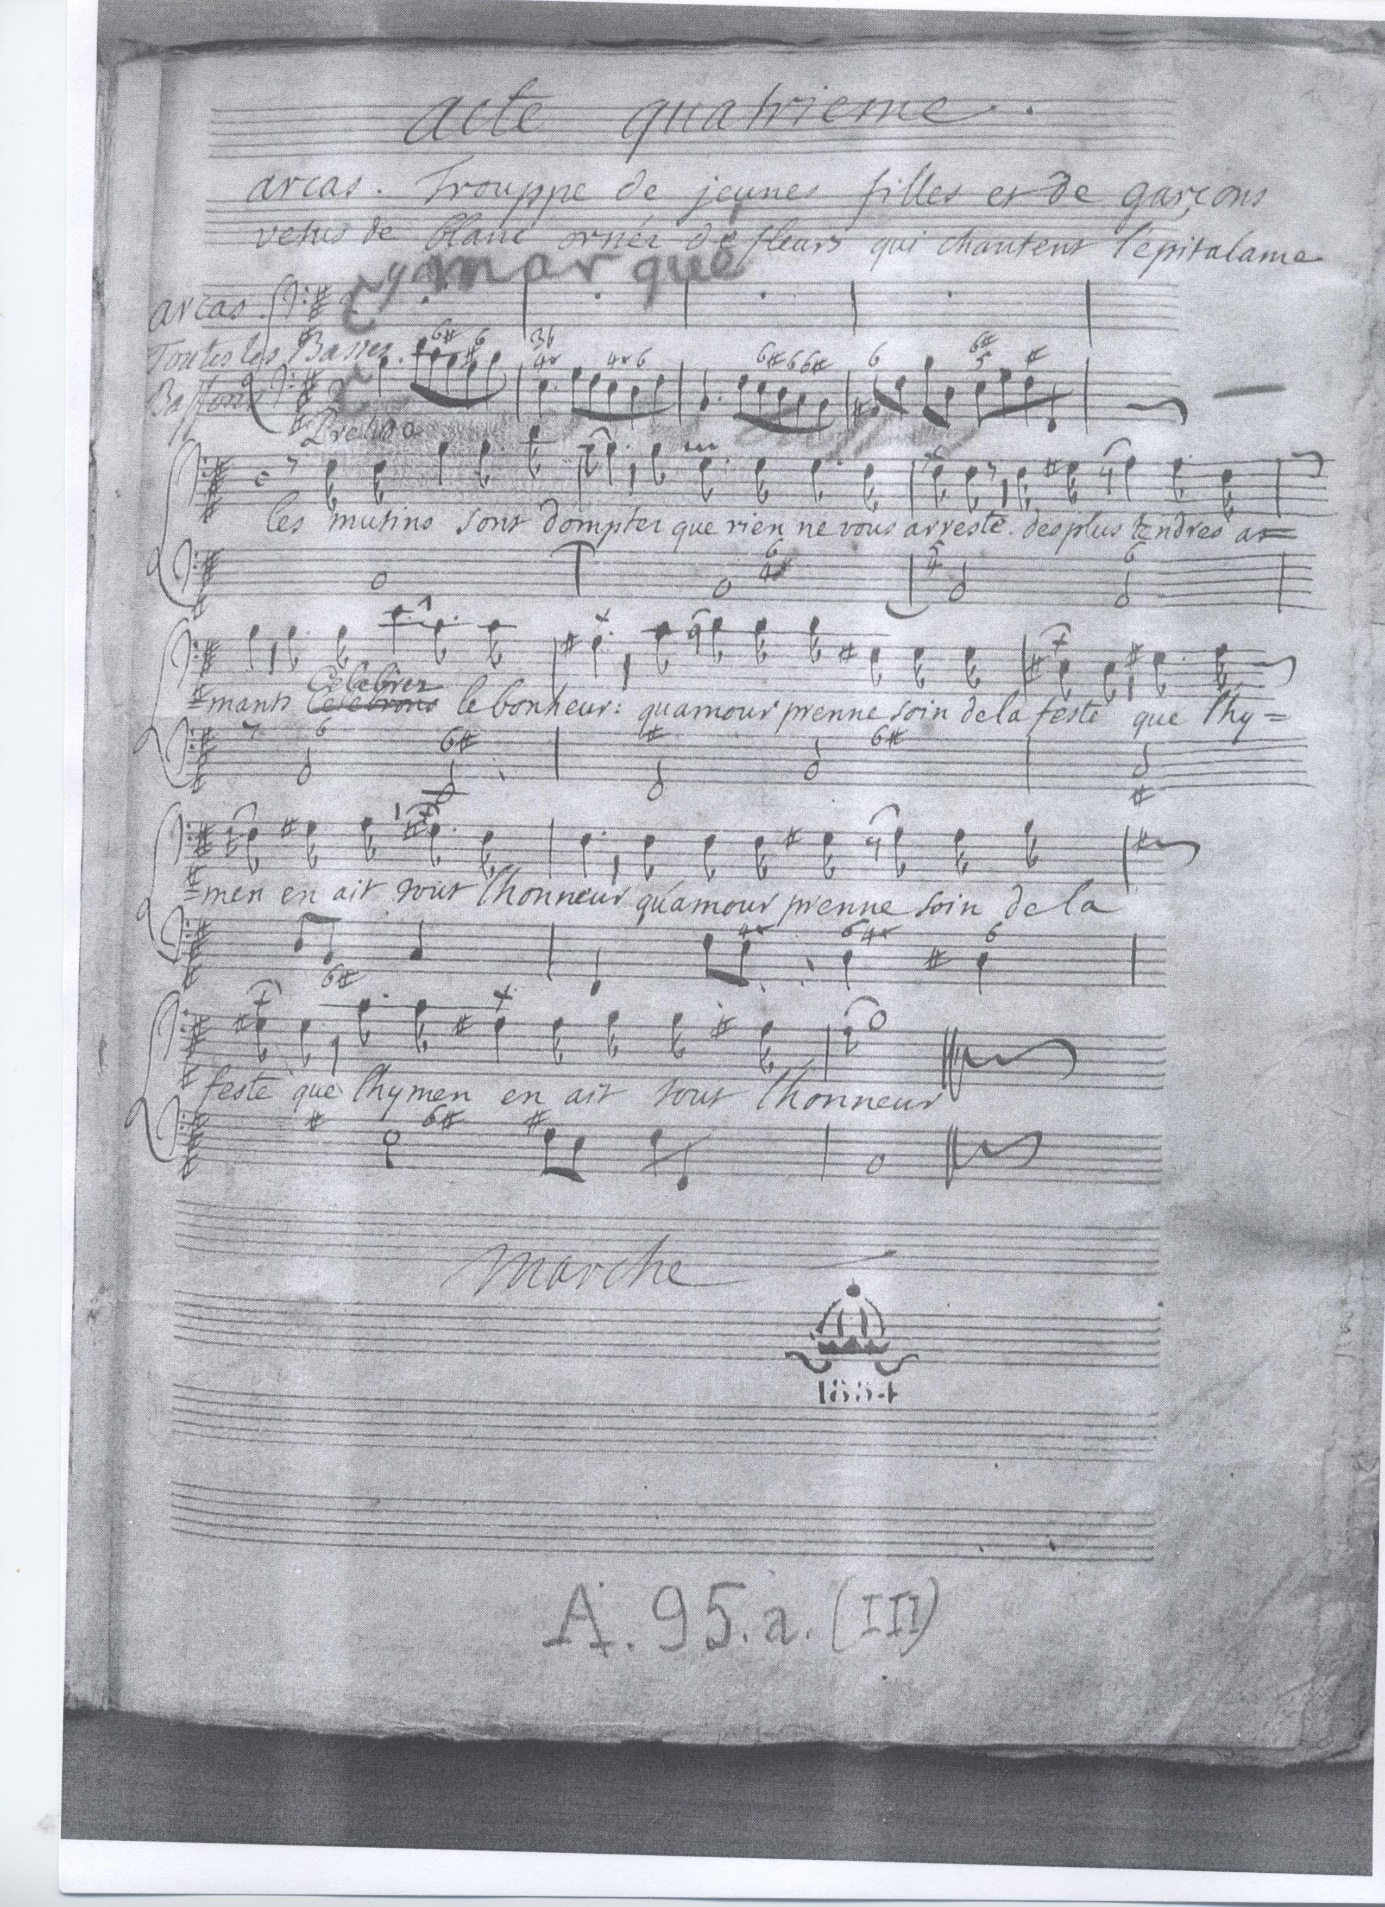 acte quatrieme..
arcas. Trouppe de jeunes filles et de garçons
vetus de blanc ornéz de fleurs qui chantent l'epitalame
marqué
arcas
Toutes les Basses.
Bassons
Prelude
les mutins sont domptez que rien ne vous arreste. des plus tendres a=
Celebrez
=mants Celebrons le bonheur: quamour prenne soin de la feste que lhy=
=men en ait tout lhonneur quamour prenne soin de la
feste que lhymen en ait tout lhonneur
marche
1884
A. 95. a. (III)